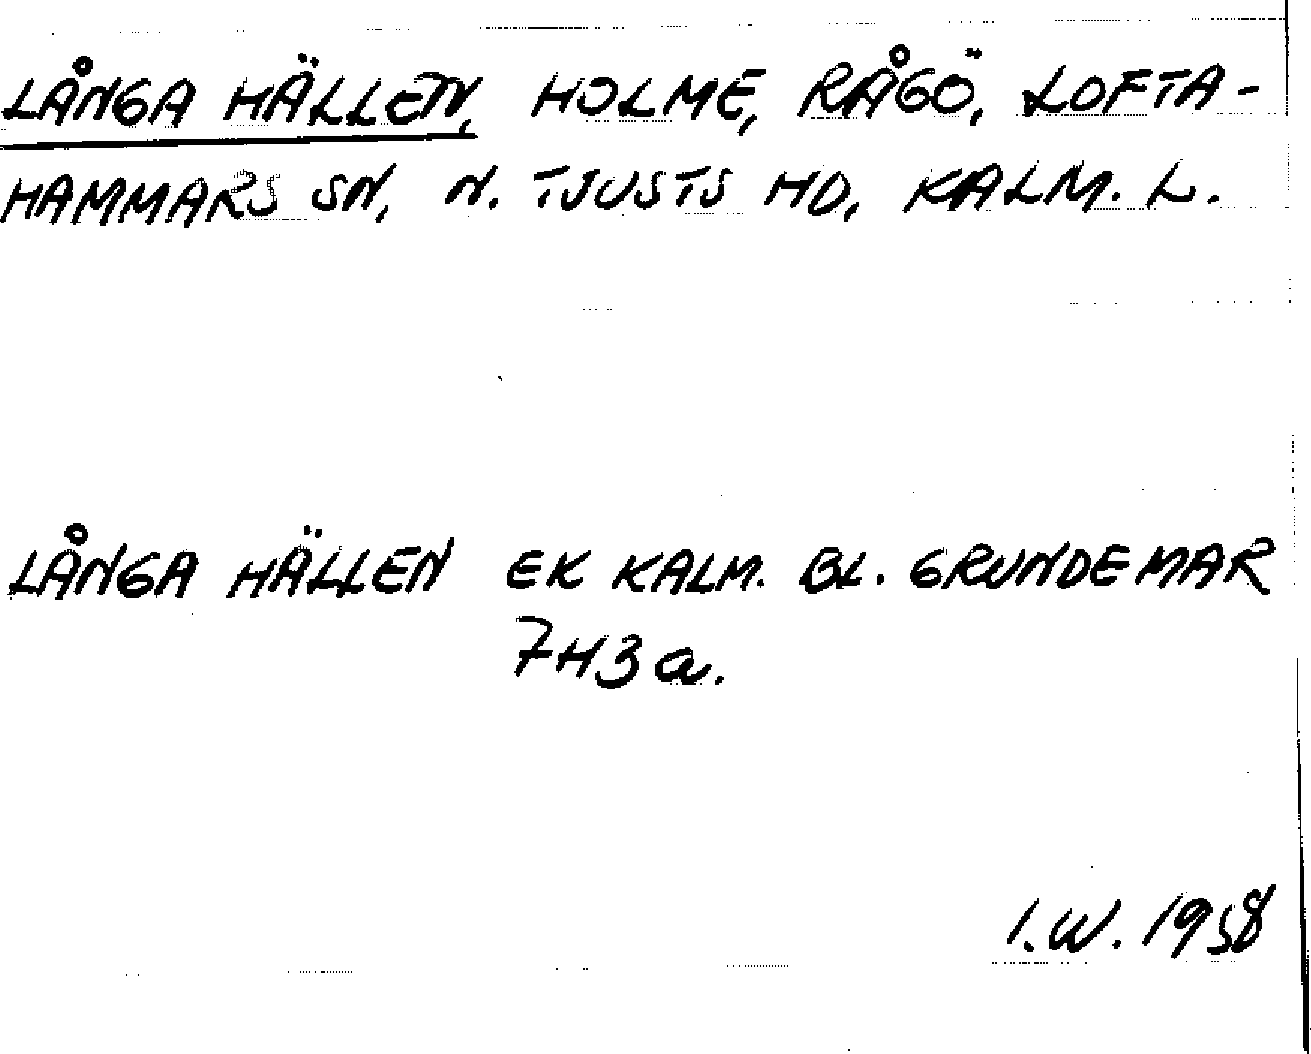 LÅNGA HÄLLEN, HOLME, RÅGÖ, LOFTA-
HAMMARS SN, N. TJUSTS HD, KALM. L.
LÅNGA HÄLLEN EK KALM. BL. GRUNDEMAR
7H3a.
I.W. 1958